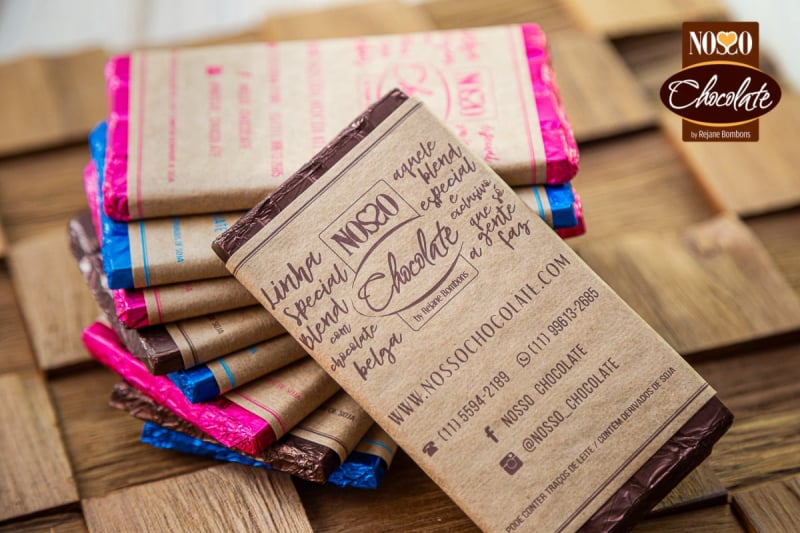 NOSSO
Chocolate
by Rejane Bombons
Linha
special
blend
com
chocolate
belga
NOSSO
Chocolate
by Rejane Bombons
aquele
blend
especial
e
exclusivo
que só
a gente
faz
WWW.NOSSOCHOCOLATE.COM
(11) 5594-2189 (11) 99613-2685
NOSSO CHOCOLATE
@NOSSO_CHOCOLATE
PODE CONTER TRAÇOS DE LEITE / CONTÉM DERIVADOS DE SOJA